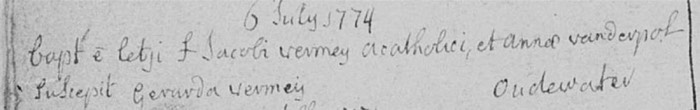 6 July 1774
bapt ē letji f Jacobi vermey acatholici, et annæ vanderpol
suscepit Gerarda vermeij Oudewater